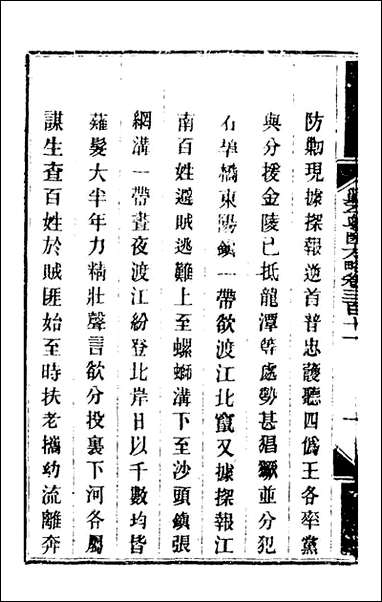 防勦現據探報逆首普忠護聽四僞王各率黨
與分援金陵已抵龍潭等處勢甚猖獗並分犯
石阜橋東陽鎮一帶欲渡江北竄又據探報江
南百姓避賊逃難上至螺螄溝下至沙頭鎮張
網溝一帶晝夜渡江紛登北岸日以千數均皆
薙髮大半年力精壯聲言欲分投裏下河各屬
謀生查百姓於賊匪始至時扶老攜幼流離奔
方略卷三百十一